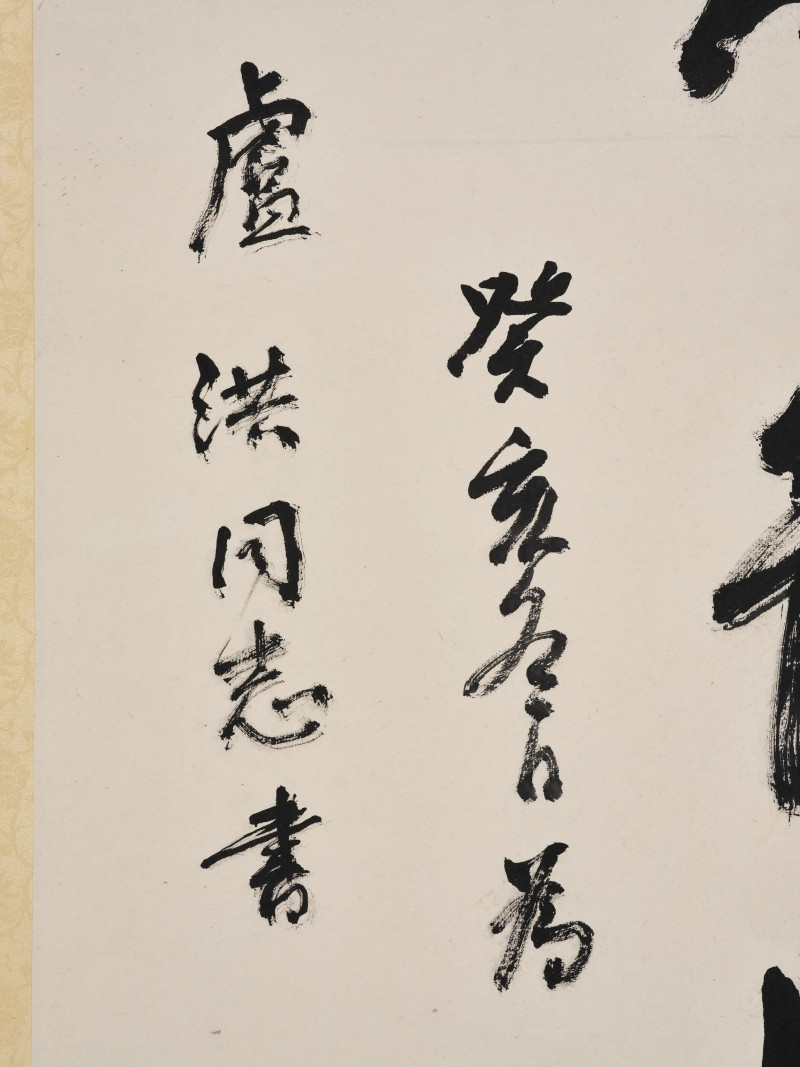 癸亥冬月为
盧洪同志書